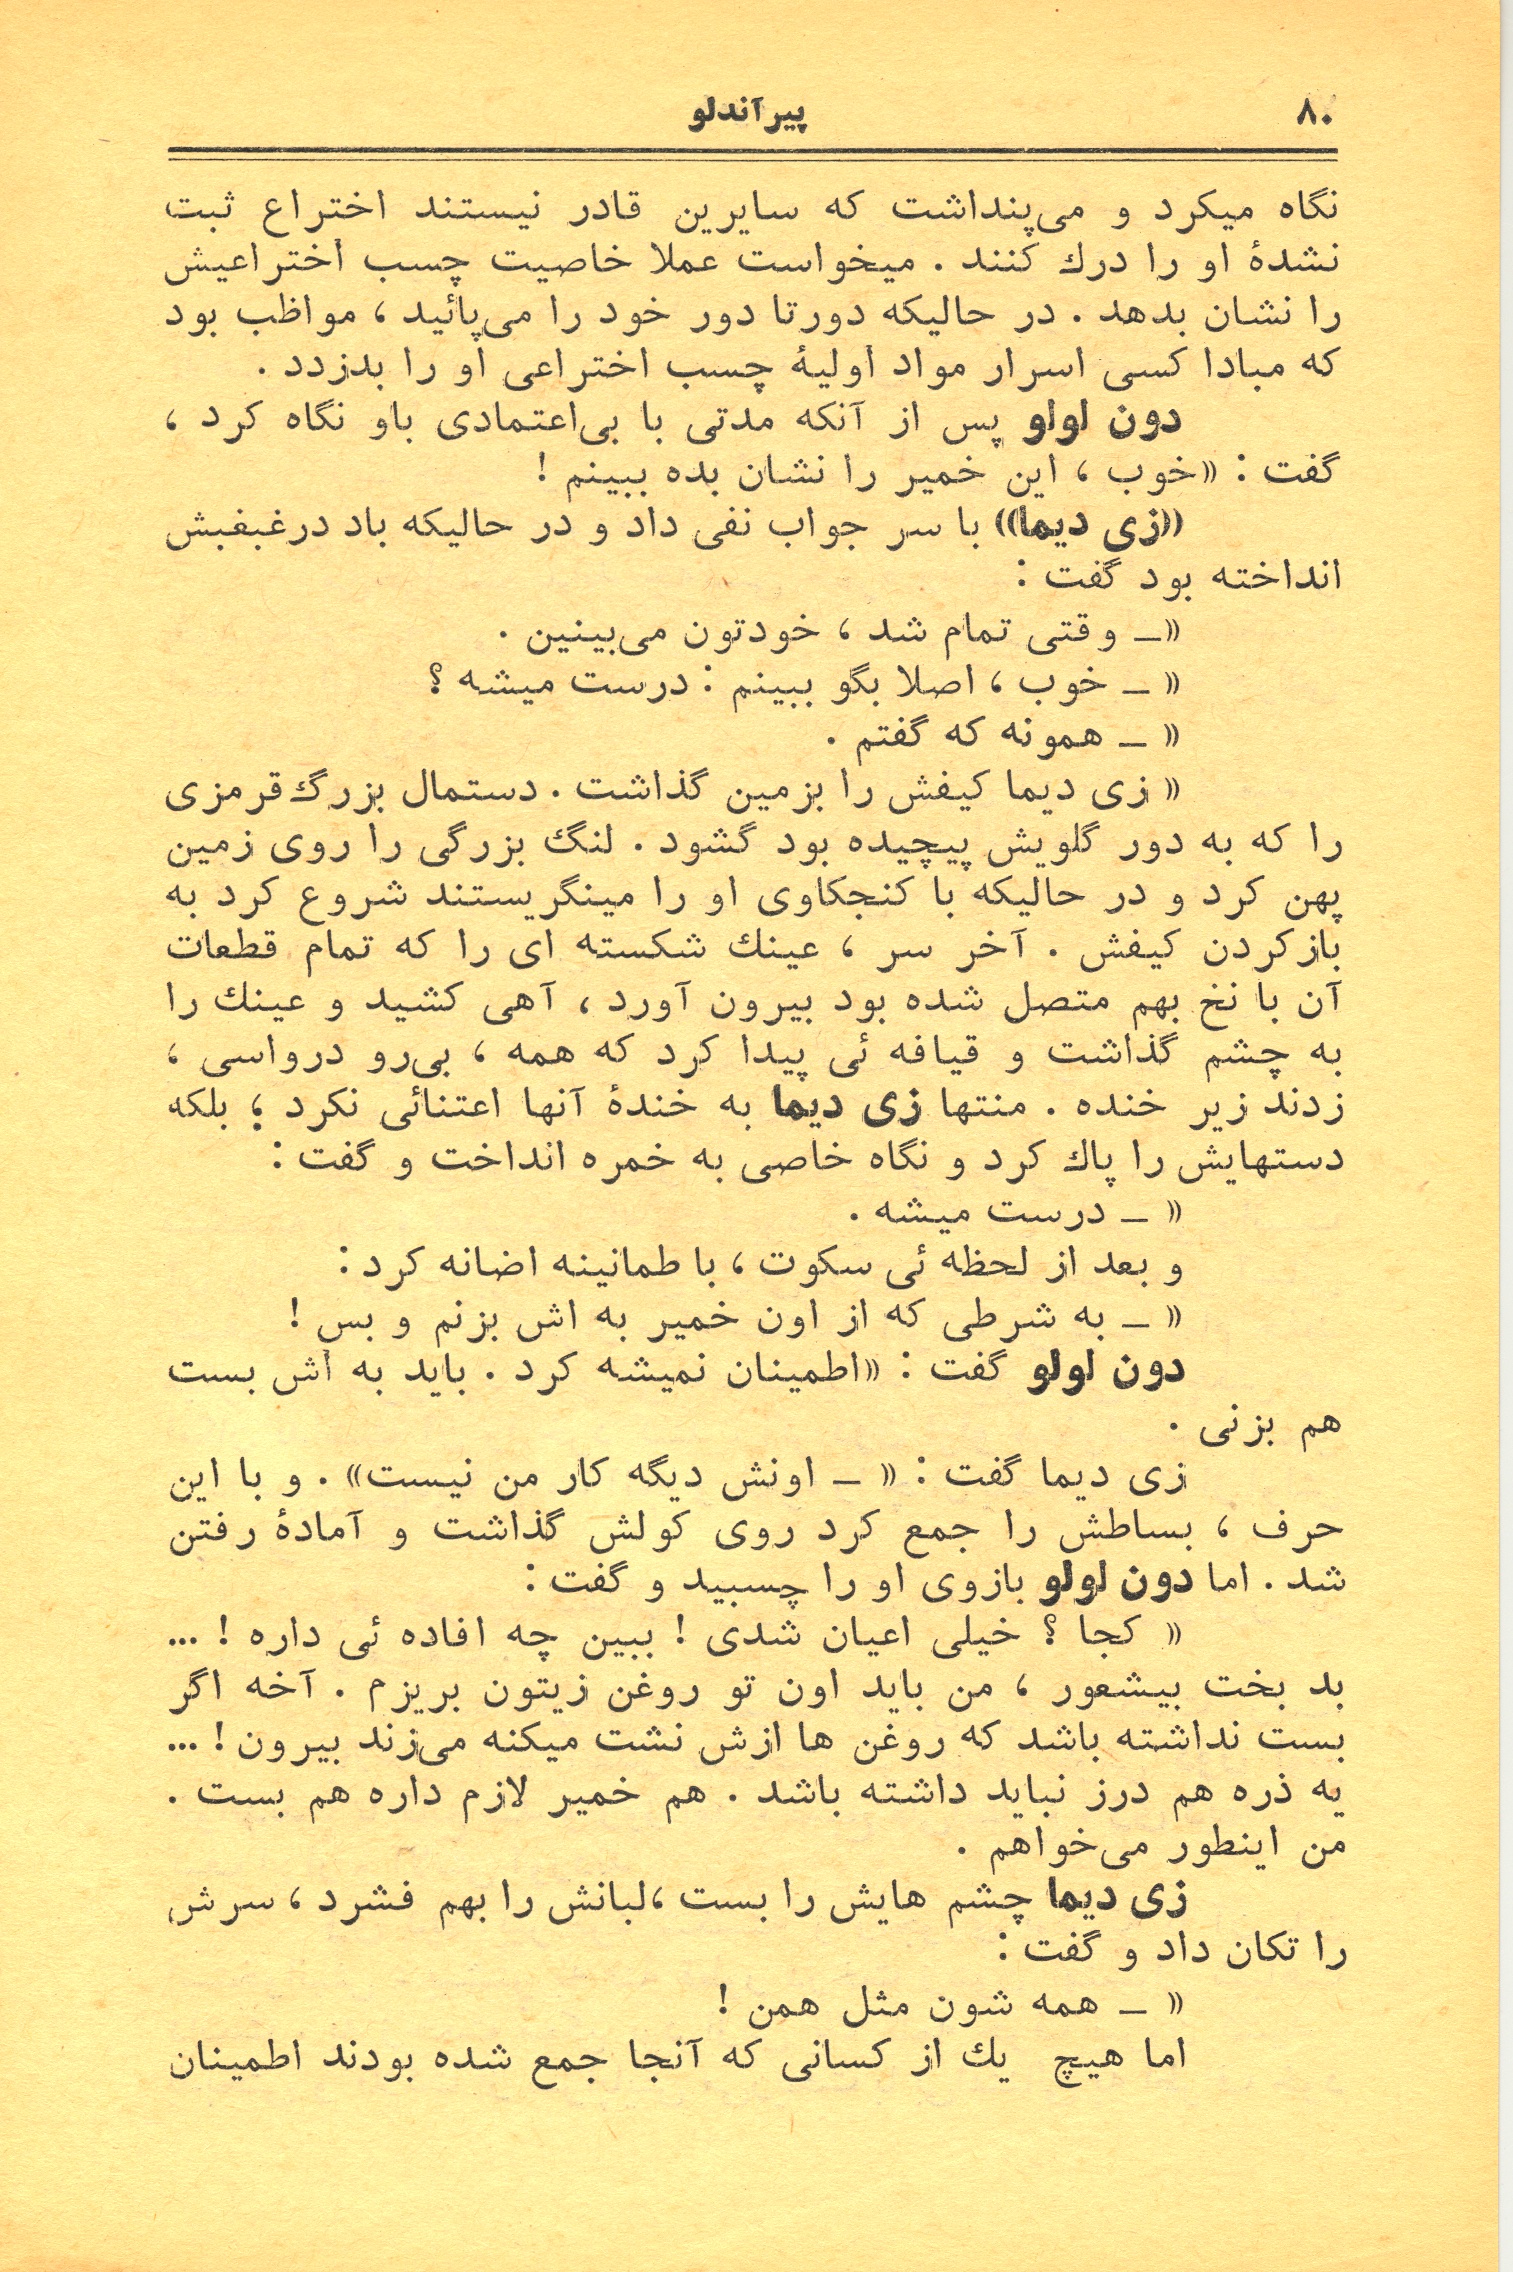 ۸۰ پیرآندلو
نگاه میکرد و می‌پنداشت که سایرین قادر نیستند اختراع ثبت
نشدهٔ او را درك کنند . میخواست عملا خاصیت چسب اختراعیش
را نشان بدهد . در حالیکه دورتا دور خود را می‌پائید ، مواظب بود
که مبادا کسی اسرار مواد اولیهٔ چسب اختراعی او را بدزدد .
دون لولو پس از آنکه مدتی با بی‌اعتمادی باو نگاه کرد ،
گفت : «خوب ، این خمیر را نشان بده ببینم !
«زی دیما» با سر جواب نفی داد و در حالیکه باد درغبغبش
انداخته بود گفت :
«ــ وقتی تمام شد ، خودتون می‌بینین .
« ــ خوب ، اصلا بگو ببینم : درست میشه ؟
« ــ همونه که گفتم .
« زی دیما کیفش را بزمین گذاشت . دستمال بزرگ قرمزی
را که به دور گلویش پیچیده بود گشود . لنگ بزرگی را روی زمین
پهن کرد و در حالیکه با کنجکاوی او را مینگریستند شروع کرد به
بازکردن کیفش . آخر سر ، عینك شکسته ای را که تمام قطعات
آن با نخ بهم متصل شده بود بیرون آورد ، آهی کشید و عینك را
به چشم گذاشت و قیافه ئی پیدا کرد که همه ، بی‌رو درواسی ،
زدند زیر خنده . منتها زی دیما به خندهٔ آنها اعتنائی نکرد ؛ بلکه
دستهایش را پاك کرد و نگاه خاصی به خمره انداخت و گفت :
« ــ درست میشه .
و بعد از لحظه ئی سکوت ، با طمانینه اضانه کرد :
« ــ به شرطی که از اون خمیر به اش بزنم و بس !
دون لولو گفت : «اطمینان نمیشه کرد . باید به اش بست
هم بزنی .
زی دیما گفت : « ــ اونش دیگه کار من نیست» . و با این
حرف ، بساطش را جمع کرد روی کولش گذاشت و آمادهٔ رفتن
شد . اما دون لولو بازوی او را چسبید و گفت :
« کجا ؟ خیلی اعیان شدی ! ببین چه افاده ئی داره ! ...
بد بخت بیشعور ، من باید اون تو روغن زیتون بریزم . آخه اگر
بست نداشته باشد که روغن ها ازش نشت میکنه می‌زند بیرون ! ...
یه ذره هم درز نباید داشته باشد . هم خمیر لازم داره هم بست .
من اینطور می‌خواهم .
زی دیما چشم هایش را بست ،لبانش را بهم فشرد ، سرش
را تکان داد و گفت :
« ــ همه شون مثل همن !
اما هیچ یك از کسانی که آنجا جمع شده بودند اطمینان